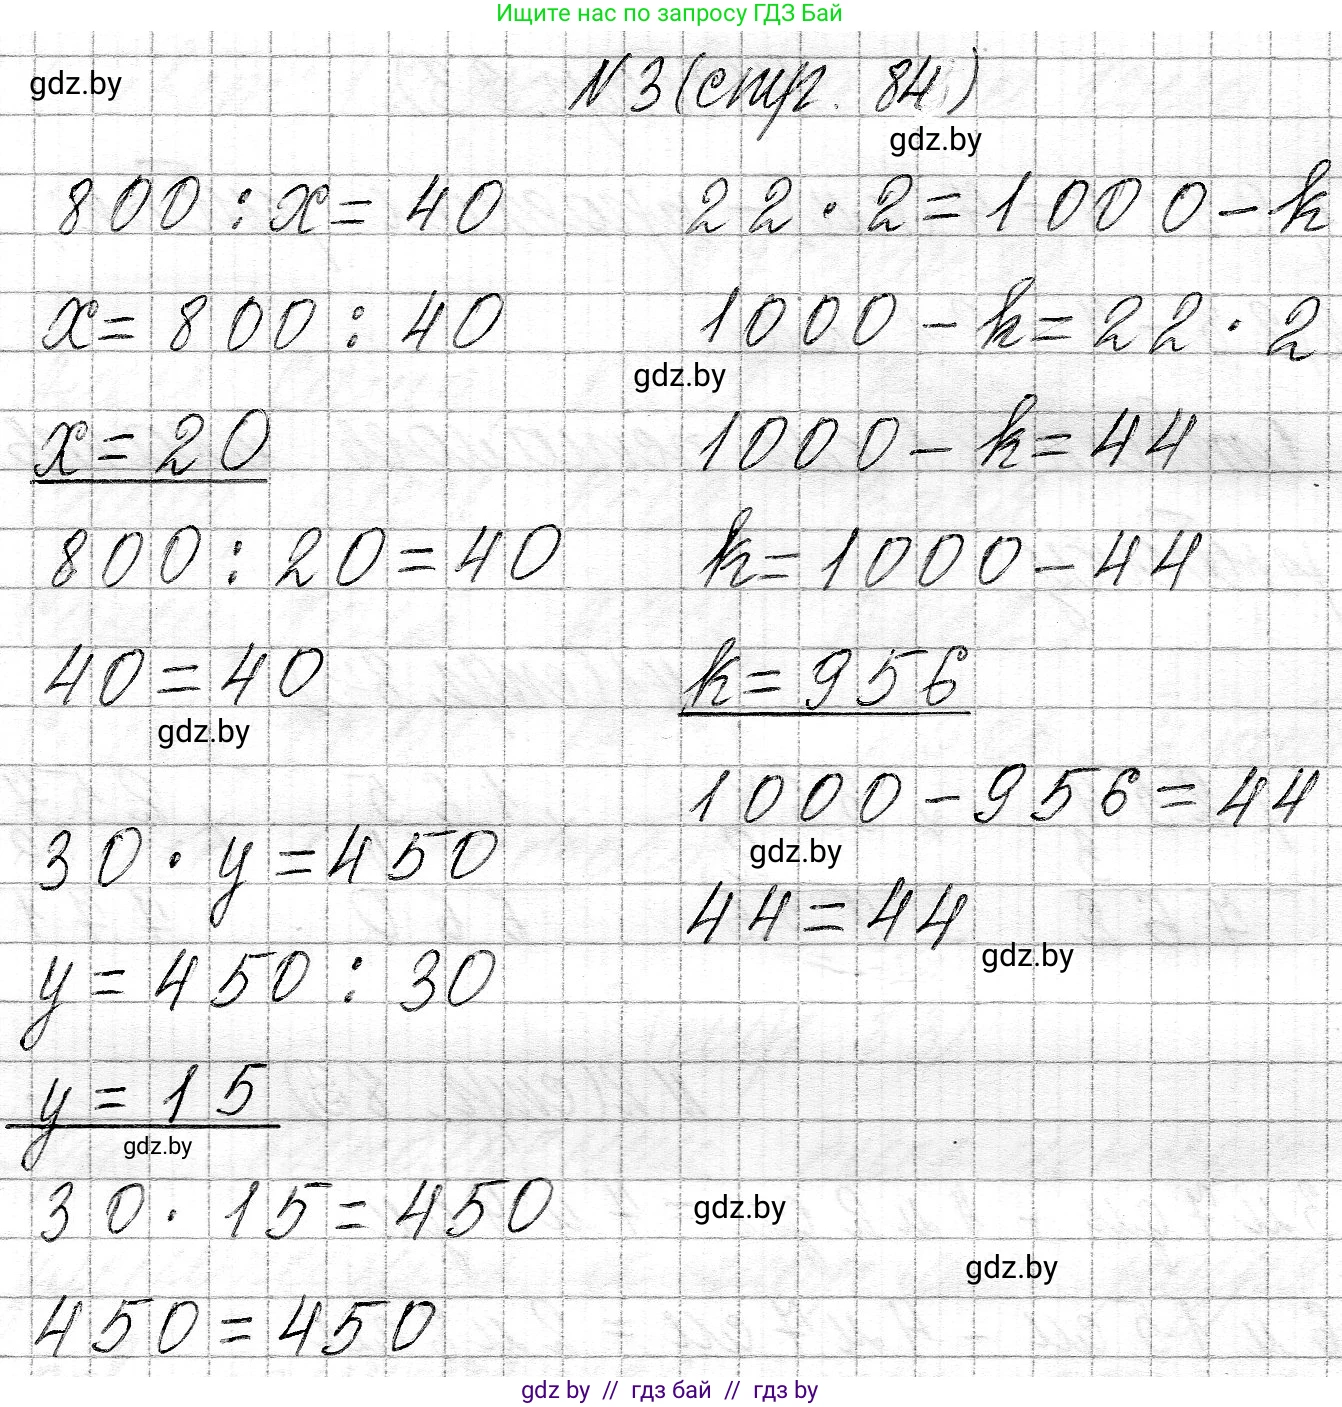 Ищите нас по запросу ГДЗ Бай
gdz.by
N 3 (стр. 84)
gdz.by
800 : x = 40
x = 800 : 40
x = 20
800 : 20 = 40
40 = 40
gdz.by
30 · y = 450
y = 450 : 30
y = 15
gdz.by
30 · 15 = 450
450 = 450
22 · 2 = 1000 - k
1000 - k = 22 · 2
gdz.by
1000 - k = 44
k = 1000 - 44
k = 956
1000 - 956 = 44
gdz.by
44 = 44
gdz.by
gdz.by
gdz.by
gdz by // гдз бай // гдз by